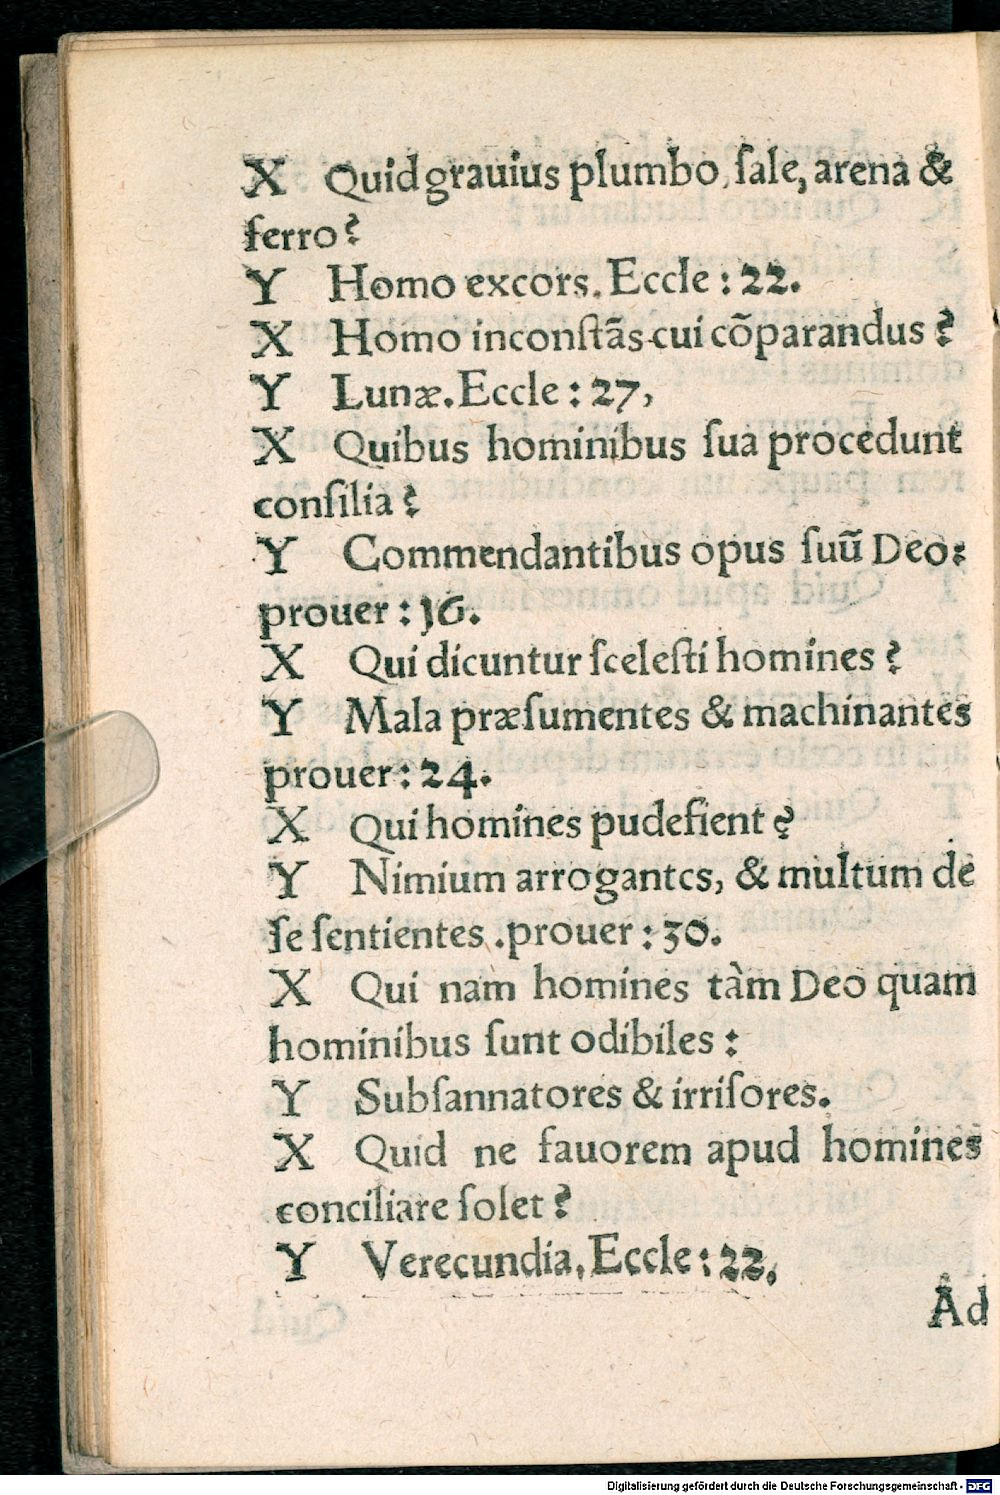 X Quid grauius plumbo, ſale, arena &
ferro?
Y Homo excors. Eccle: 22.
X Homo inconſtãs cui cõparandus?
Y Lunæ. Eccle: 27,
X Quibus hominibus ſua procedunt
conſilia?
Y Commendantibus opus ſuũ Deo:
prouer: 16.
X Qui dicuntur ſceleſti homines?
Y Mala præſumentes & machinantes
prouer: 24.
X Qui homines pudefient?
Y Nimium arrogantes, & multum de
ſe ſentientes .prouer: 30.
X Qui nam homines tàm Deo quam
hominibus ſunt odibiles:
Y Subſannatores & irriſores.
X Quid ne fauorem apud homines
conciliare ſolet?
Y Verecundia. Eccle: 22.
Ad
Digitalisierung gefördert durch die Deutsche Forschungsgemeinschaft - DFG